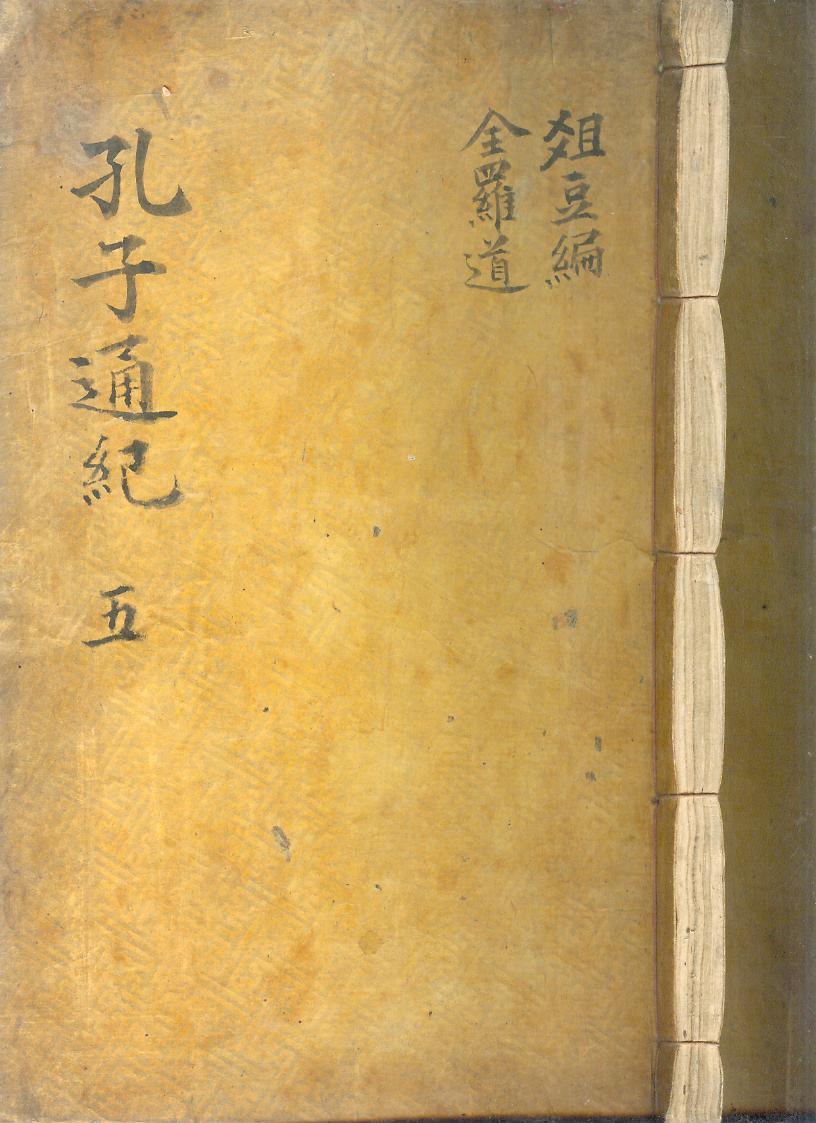 俎豆編
全羅道
孔子通紀 五